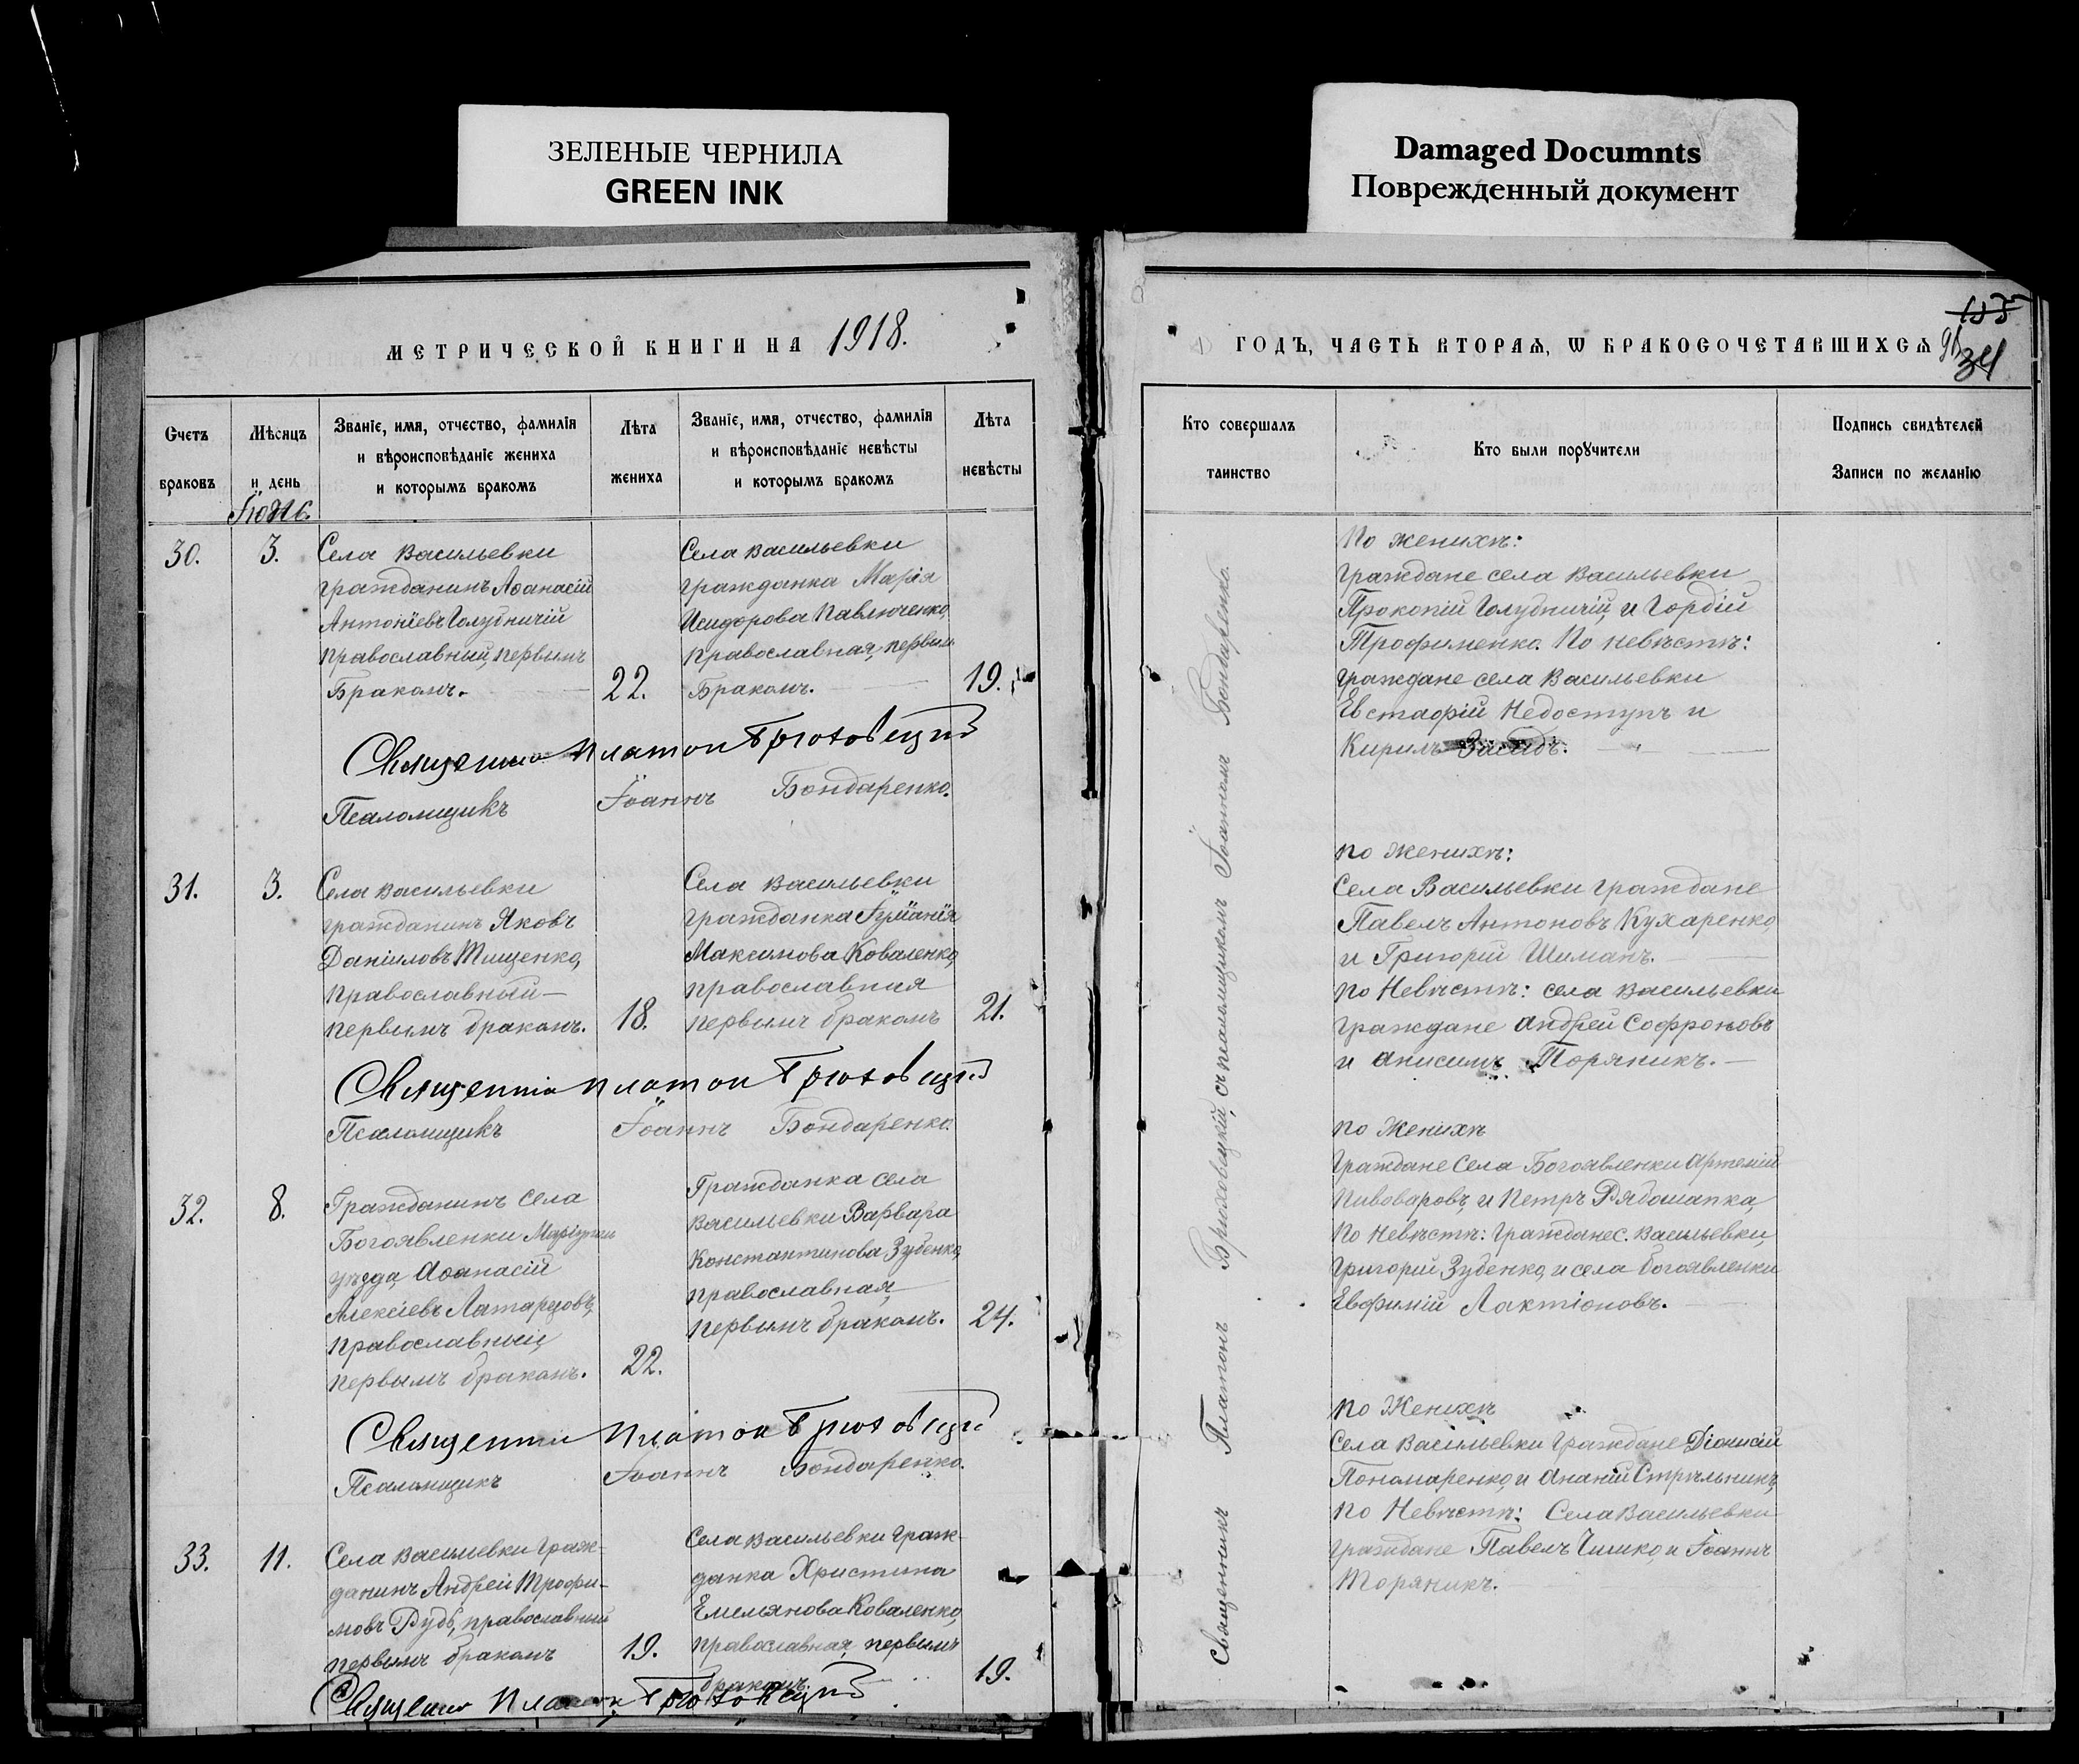 ЗЕЛЕНЫЕ ЧЕРНИЛА
GREEN INK
Damaged Documnts
Поврежденный документ
МЕТРИЧЕСКОЙ КНИГИ НА 1918.
Счетъ
браковъ
Мѣсяцъ
и день
Званіе, имя, отчество, фамилія
и вѣроисповѣданіе жениха
и которымъ бракомъ
Лѣта
жениха
Званіе, имя, отчество, фамилія
и вѣроисповѣданіе невѣсты
и которымъ бракомъ
Лѣта
невѣсты
30.
3.
Села Васильевки
гражданинъ Аѳанасій
Антоніевъ Голудничій
православный, первымъ
Бракомъ.
22.
Села Васильевки
гражданка Марія
Исидорова Павлюченко,
православная, первым
Бракомъ.
19.
Священник Платон Брюховецкий
Псаломщикъ Іоаннъ Бондаренко.
31.
3.
Села Васильевки
гражданинъ Яковъ
Даніиловъ Тищенко,
православный
первымъ бракомъ.
18.
Села Васильевки
гражданка
Максимова Коваленко,
православная
первымъ бракомъ
21.
Священник Платон Брюховецкий
Псаломщикъ Іоаннъ Бондаренко.
32.
8.
Гражданинъ села
Богоявленки
уѣзда, Аѳанасій
Алексіевъ
православный,
первымъ бракомъ.
22.
Гражданка села
Васильевки Варвара
Константинова Зубенко,
православная,
первымъ бракомъ.
24.
Священник Платон Брюховецкий
Псаломщикъ Іоаннъ Бондаренко.
33.
11.
Села Васильевки граж-
данинъ Андрей Трофи-
мовъ Рудь, православный
первымъ бракомъ
19.
Села Васильевки граж-
данка Христина
Емельянова Коваленко,
православная, первымъ
бракомъ.
19.
Священник Платон Брюховецкий
ГОДЪ, ЧАСТЬ ВТОРАЯ, Ѡ БРАКОСОЧЕТАВШИХСЯ
34
Кто совершалъ
таинство
Кто были порꙋчители
Подпись свидѣтелей
Записи по желанію
Священникъ Платонъ Брюховецкій, съ псаломщикомъ Іоанномъ Бондаренко.
По женихѣ:
граждане села Васильевки
Прокопій Голудничій, и Гордій
Трофименко. По невѣстѣ:
граждане села Васильевки
Евстафій Недоступъ и
Кирилъ
по женихѣ:
Села Васильевки граждане
Павелъ Антоновъ Кухаренко,
и Григорій Шиманъ.
по Невѣстѣ: села Васильевки
граждане Андрей Софроновъ
и Анисимъ Торяникъ.
по Женихѣ
граждане Села Богоявленки Артемій
Пивоваровъ, и Петръ Рядошапка,
По Невѣстѣ: граждане с. Васильевки,
Григорій Зубенко, и села Богоявленки
Евфимій Лактіоновъ.
по Женихѣ
Села Васильевки граждане Діонисій
Пономаренко, и Ананій Стрѣльникъ,
по Невѣстѣ: Села Васильевки
граждане Павелъ и Іоаннъ
Торяникъ.